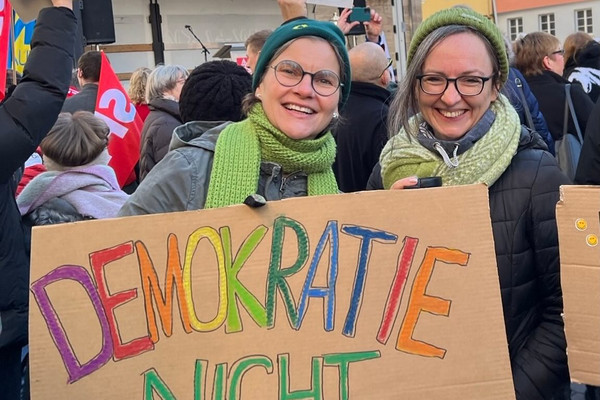 DEMOKRATIE
NICHT